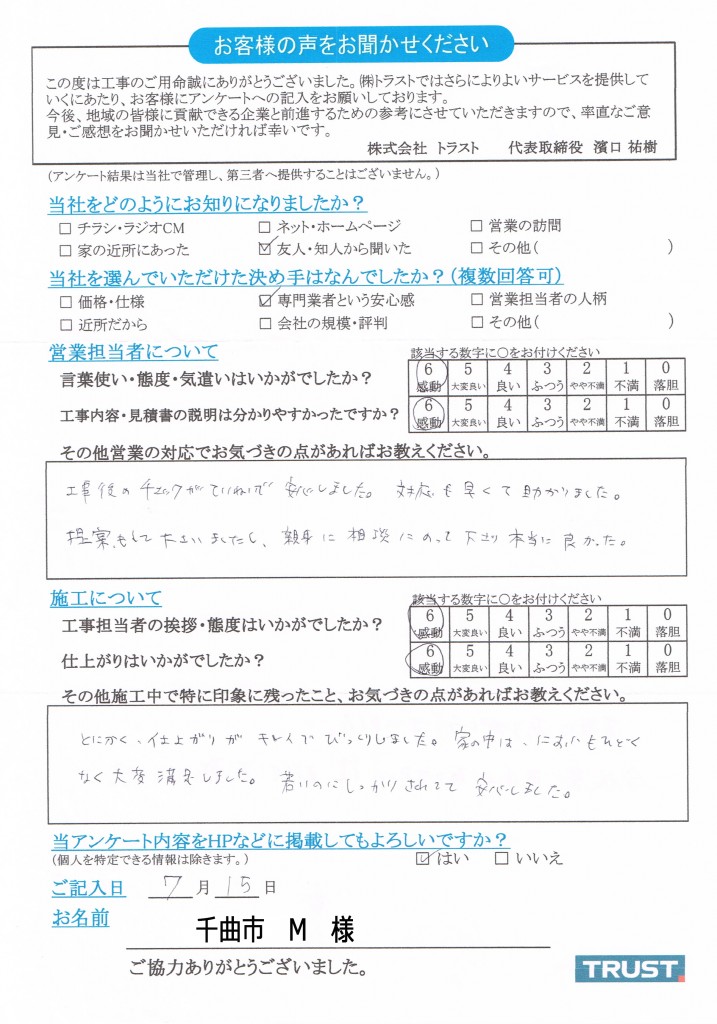 お客様の声をお聞かせください
この度は工事のご用命誠にありがとうございました。㈱トラストではさらによりよいサービスを提供して
いくにあたり、お客様にアンケートへの記入をお願いしております。
今後、地域の皆様に貢献できる企業と前進するための参考にさせていただきますので、率直なご意
見・ご感想をお聞かせいただければ幸いです。
株式会社 トラスト 代表取締役 濱口 祐樹
(アンケート結果は当社で管理し、第三者へ提供することはございません。)
当社をどのようにお知りになりましたか?
□ チラシ・ラジオCM □ ネット・ホームページ □ 営業の訪問
□ 家の近所にあった ☑ 友人・知人から聞いた □ その他( )
当社を選んでいただけた決め手はなんでしたか?(複数回答可)
□ 価格・仕様 ☑ 専門業者という安心感 □ 営業担当者の人柄
□ 近所だから □ 会社の規模・評判 □ その他( )
営業担当者について 該当する数字に○をお付けください
言葉使い・態度・気遣いはいかがでしたか? 6 感動 5 大変良い 4 良い 3 ふつう 2 やや不満 1 不満 0 落胆
工事内容・見積書の説明は分かりやすかったですか? 6 感動 5 大変良い 4 良い 3 ふつう 2 やや不満 1 不満 0 落胆
その他営業の対応でお気づきの点があればお教えください。
工事後のチェックがていねいで 安心しました。 対応も早くて助かりました。
提案もして下さいましたし、親身に相談にのって下さり本当に良かった。
施工について 該当する数字に○をお付けください
工事担当者の挨拶・態度はいかがでしたか? 6 感動 5 大変良い 4 良い 3 ふつう 2 やや不満 1 不満 0 落胆
仕上がりはいかがでしたか? 6 感動 5 大変良い 4 良い 3 ふつう 2 やや不満 1 不満 0 落胆
その他施工中で特に印象に残ったこと、お気づきの点があればお教えください。
とにかく、仕上がりが キレイで びっくりしました。 家の中は、においもほとどく
なく大変満足しました。 若いのにしっかりされてて 安心しました。
当アンケート内容をHPなどに掲載してもよろしいですか?
(個人を特定できる情報は除きます。) ☑ はい □ いいえ
ご記入日 7 月 15 日
お名前 千曲市 M 様
ご協力ありがとうございました。
TRUST.